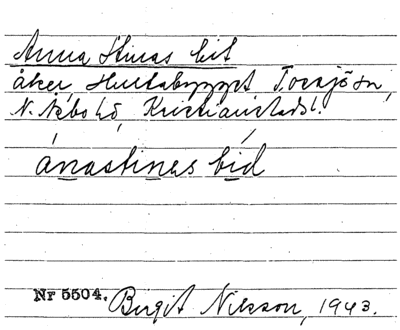 Anna Stinas bit
åker, Hultabygget Torsjö sn,
N. Åsbo hd, Kristianstads l.
ánastinas bíd
Nr 5504. Birgit Nilsson, 1943.